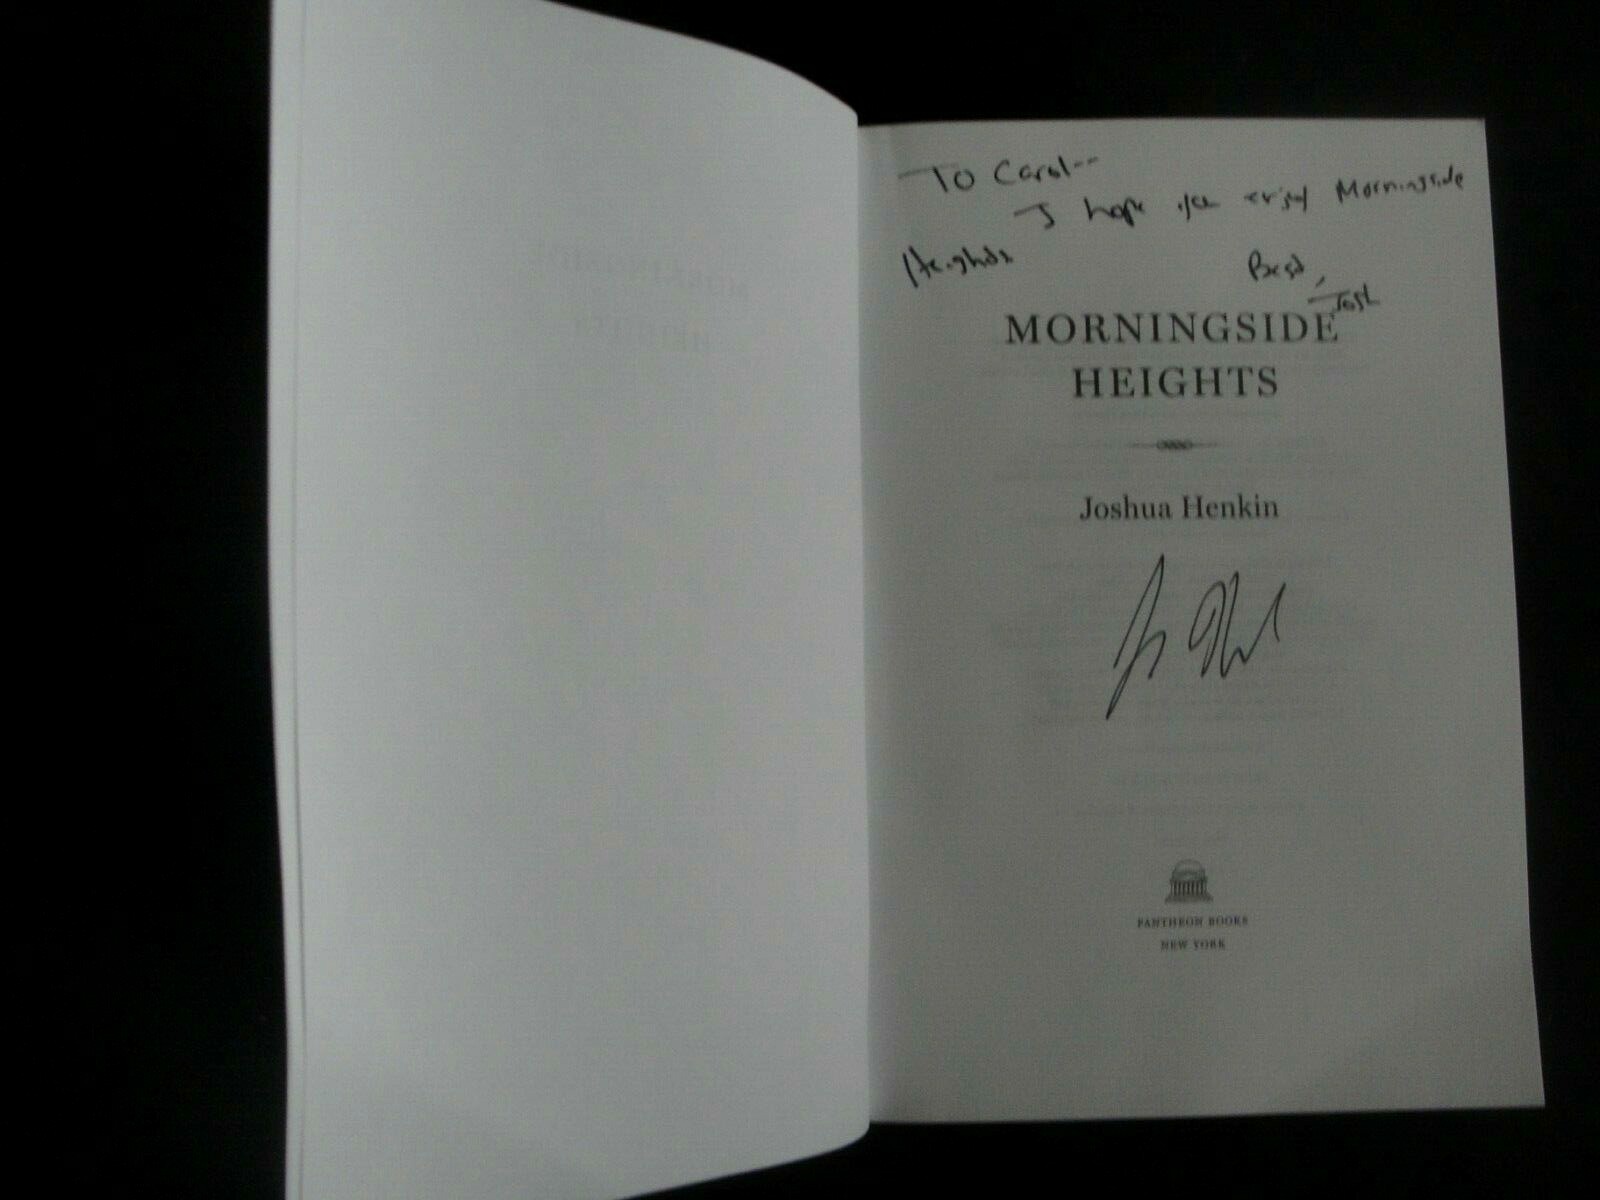 To Carol--
I hope you enjoy Morningside
Heights
Best,
Josh
MORNINGSIDE
HEIGHTS
Joshua Henkin
PANTHEON BOOKS
NEW YORK